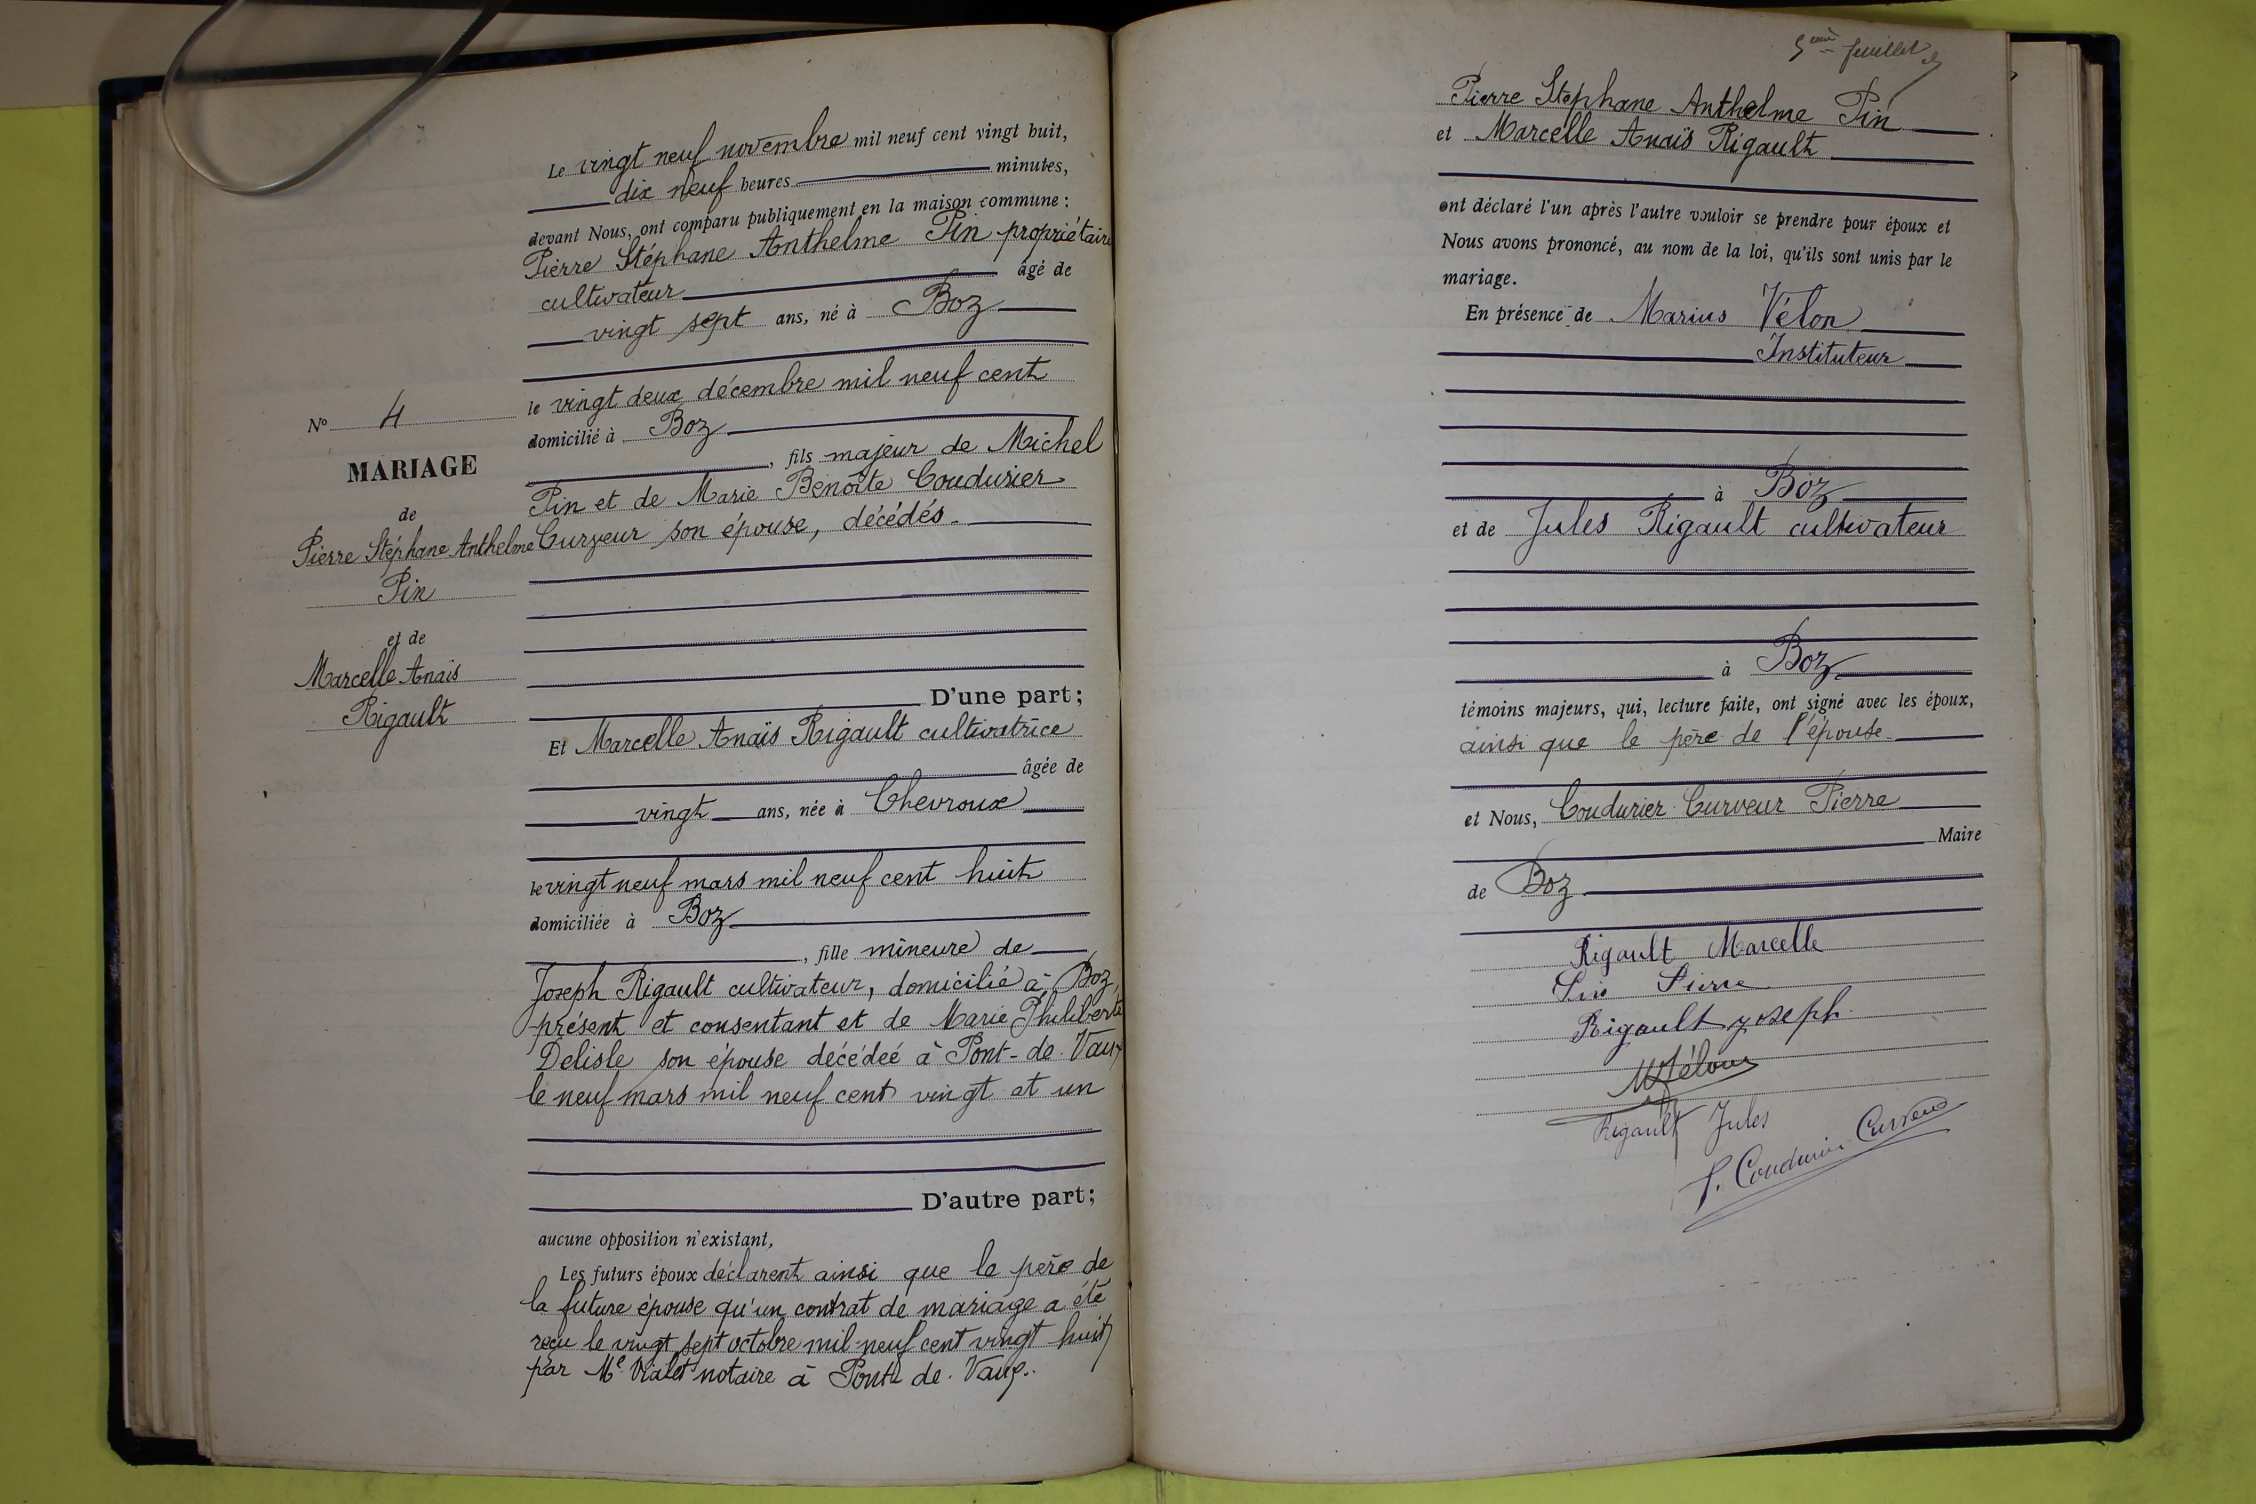 Le vingt neuf novembre mil neuf cent vingt huit,
dix neuf heures minutes,
devant Nous, ont comparu publiquement en la maison commune :
Pierre Stéphane Anthelme Pin propriétaire
cultivateur âgé de
vingt sept ans, né à Boz
le vingt deux décembre mil neuf cent
domicilié à Boz
, fils majeur de Michel
Pin et de Marie Benoîte Coudurier
Curveur son épouse, décédés.
N° 4
MARIAGE
de
Pierre Stéphane Anthelme
Pin
et de
Marcelle Anaïs
Rigault
D'une part;
Et Marcelle Anaïs Rigault cultivatrice
âgée de
vingt ans, née à Chevroux
le vingt neuf mars mil neuf cent huit
domiciliée à Boz
, fille mineure de
Joseph Rigault cultivateur, domicilié à Boz,
présent et consentant et de Marie Philiberte
Delisle son épouse décédeé à Pont-de-Vaux
le neuf mars mil neuf cent vingt et un
D'autre part;
aucune opposition n'existant,
Les futurs époux déclarent ainsi que le père de
la future épouse qu'un contrat de mariage a été
reçu le vingt sept octobre mil neuf cent vingt huit
par Me Vialet notaire à Pont de Vaux.
5ème feuillet
Pierre Stéphane Anthelme Pin
et Marcelle Anaïs Rigault
ont déclaré l'un après l'autre vouloir se prendre pour époux et
Nous avons prononcé, au nom de la loi, qu'ils sont unis par le
mariage.
En présence de Marius Vélon
Instituteur
à Boz
et de Jules Rigault cultivateur
à Boz
témoins majeurs, qui, lecture faite, ont signé avec les époux,
ainsi que le père de l'épouse.
et Nous, Coudurier-Curveur Pierre
Maire
de Boz
Rigault Marcelle
Pin Pierre
Rigault joseph.
M Vélon
Rigault Jules
P. Coudurier Curveur